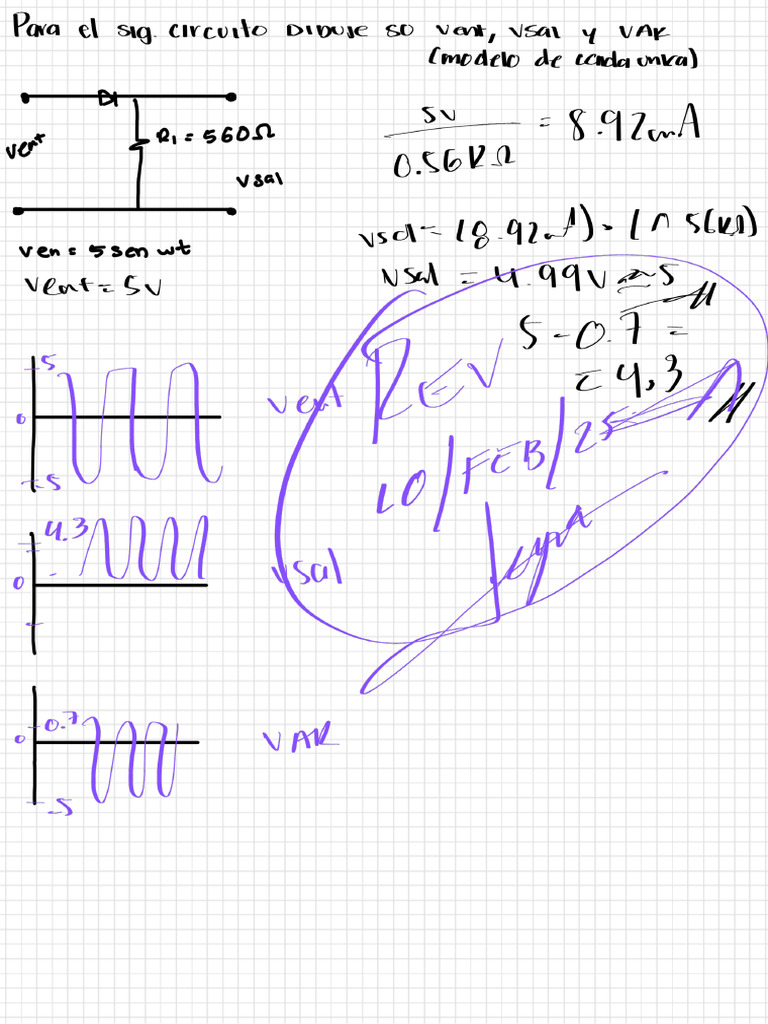 Para el sig. circuito Dibuje so vent, vsal y VAK
(modelo de caida unica)
vent
R₁ = 560Ω
vsal
ven = 5 sen wt
vent = 5v
5v
0.56KΩ
= 8.92mA
vsal = (8.92mA) · (0.56KΩ)
vsal = 4.99v ≈ 5
5 - 0.7 =
= 4.3
REV
10/FEB/25
5
0
-5
vent
4.3
0
vsal
0.7
0
-5
VAK